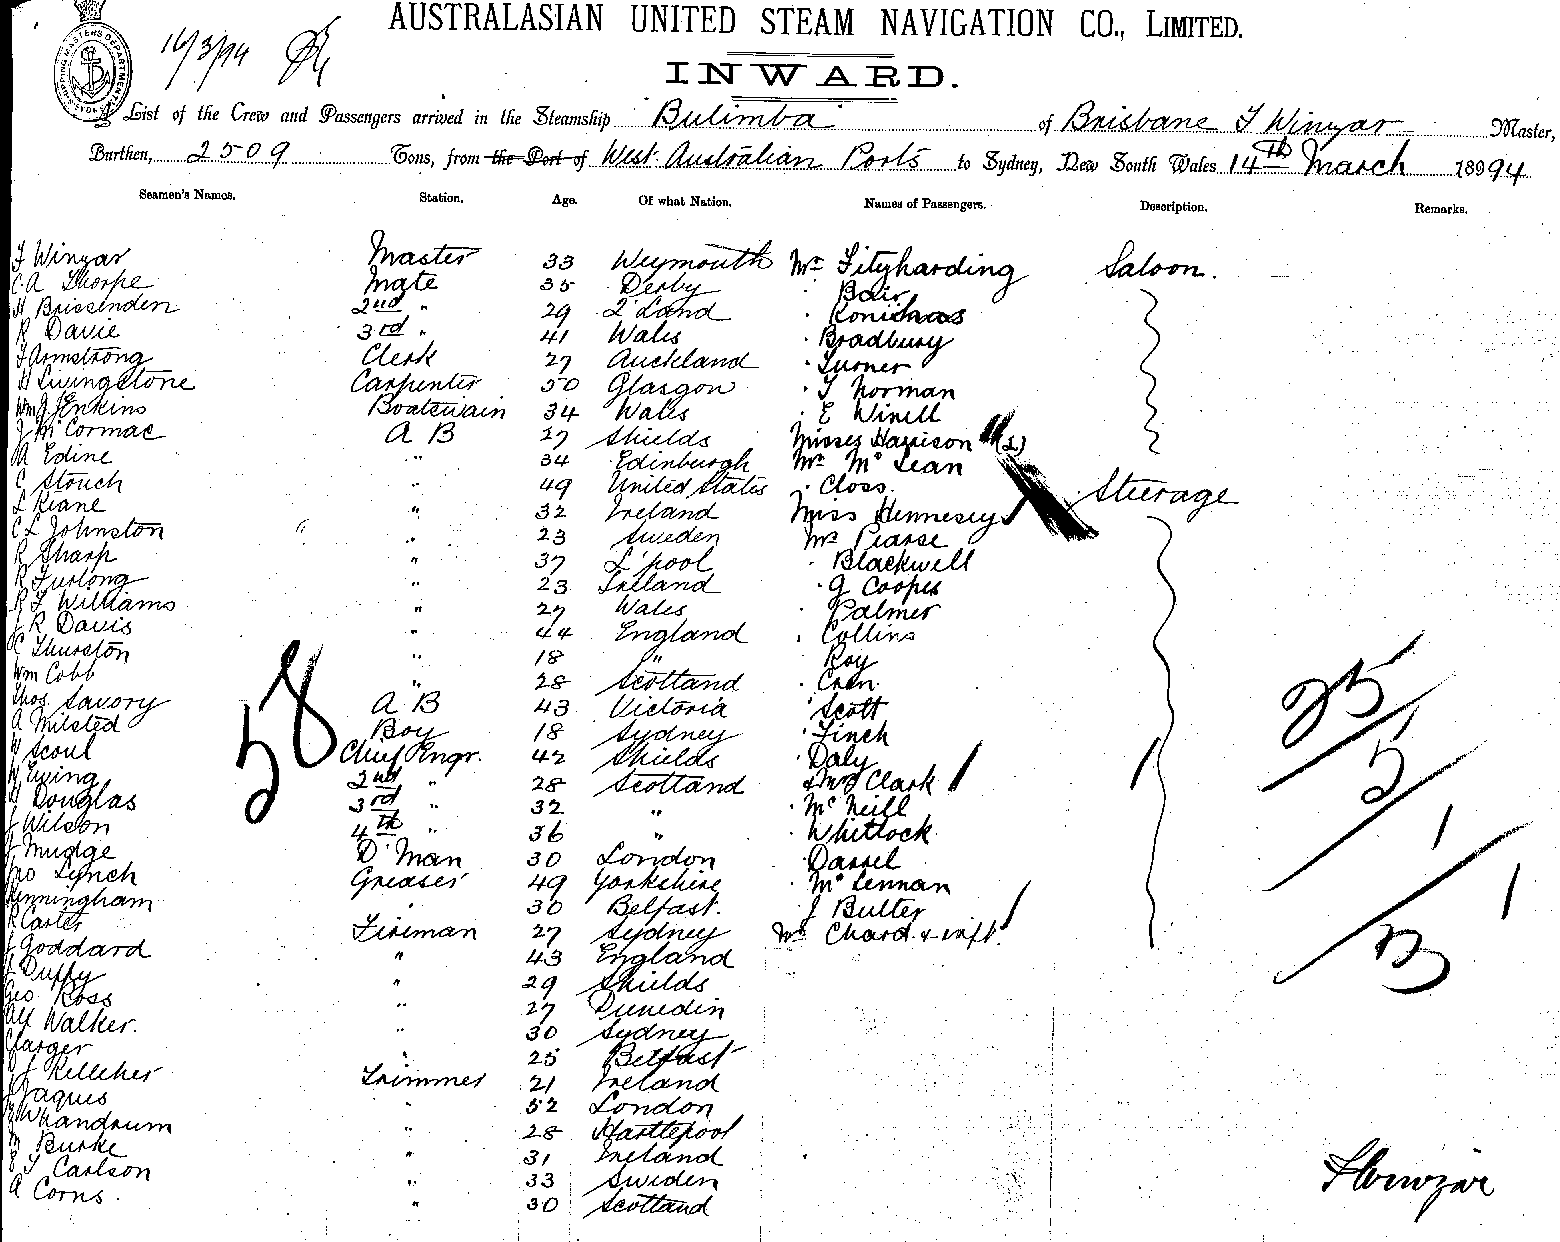 AUSTRALASIAN UNITED STEAM NAVIGATION CO., LIMITED.
16/3/94
INWARD.
A List of the Crew and Passengers arrived in the Steamship Bulimba of Brisbane F Winzar Master,
Burthen, 2509 Tons, from the Port of West Australian Ports to Sydney, New South Wales 14th March 18994
Seamen's Names. Station. Age. Of what Nation. Names of Passengers. Description. Remarks.
F Winzar Master 33 Weymouth Mr Fitzharding Saloon.
C A Thorpe Mate 35 Derby " Bair
H Brissenden 2nd " 29 Q'Land "
R Davie 3rd " 41 Wales " Bradbury
F Armstrong Clerk 27 Auckland " Turner
H Livingstone Carpenter 50 Glasgow " T Norman
Wm J Jenkins Boatswain 34 Wales " E Winell
J McCormac A B 27 Shields Misses Harrison (2)
A Edine " 34 Edinburgh Mr McLean
C Stouch " 49 United States " Closs Steerage
L Keane " 32 Ireland Miss Hennesey
C L Johnston " 23 Sweden Mr Pearse
R Sharp " 37 L'pool " Blackwell
R Furlong " 23 Ireland " G Cooper
R T Williams " 27 Wales " Palmer
J R Davis " 44 England " Collins
C Thurston " 18 " " Roy
Wm Cobb " 28 Scotland " Cren
Thos Savory A B 43 Victoria " Scott
A Milsted Boy 18 Sydney " Finch
W Scoul Chief Engr. 42 Shields " Daly
W Ewing 2nd " 28 Scotland & Mrs Clark
H Douglas 3rd " 32 " " McNeill
J Wilson 4th " 36 " " Whitlock
J Mudge D'Man 30 London " Darrel
Geo Lynch Greaser 49 Yorkshire " McLennan
Cunningham " 30 Belfast. J Butler
R Carter Fireman 27 Sydney Mr Chard & wife
J Goddard " 43 England
Duffy " 29 Shields
Geo Ross " 27 Dunedin
Alf Walker. " 30 Sydney
" 25 Belfast
J Kelleher Trimmer 21 Ireland
J Jaques " 52 London
" 28 Hartlepool
M Burke " 31 Ireland
T Carlson " 33 Sweden
A Corns. " 30 Scotland
58
25
5
1
1
13
F Winzar